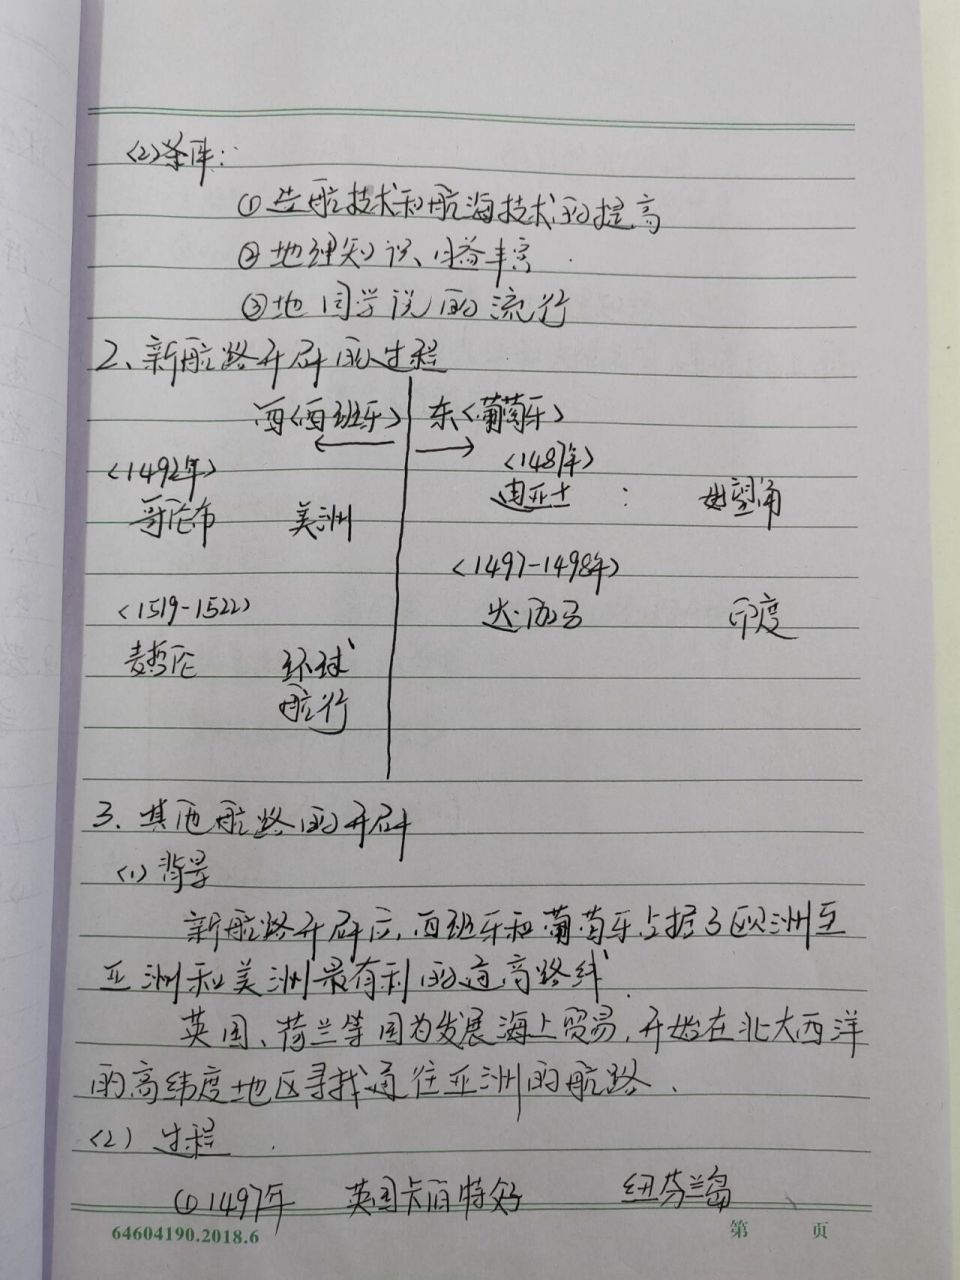 (2)条件:
①造航技术和航海技术的提高
②地理知识、日益丰富.
③地圆学说的流行
2、新航路开辟的过程
西<西班牙> 东<葡萄牙>
<1492年> <1487年>
哥伦布 美洲 迪亚士 : 好望角
<1497-1498年>
<1519-1522> 达·伽马 印度
麦哲伦 环球
航行
3.其他航路的开辟
(1)背景
新航路开辟后,西班牙和葡萄牙占据了欧洲至
亚洲和美洲最有利的通商路线.
英国、荷兰等国为发展海上贸易,开始在北大西洋
的高纬度地区寻找通往亚洲的航路.
(2)过程.
①1497年 英国卡伯特父子 纽芬兰岛
64604190.2018.6 第 页